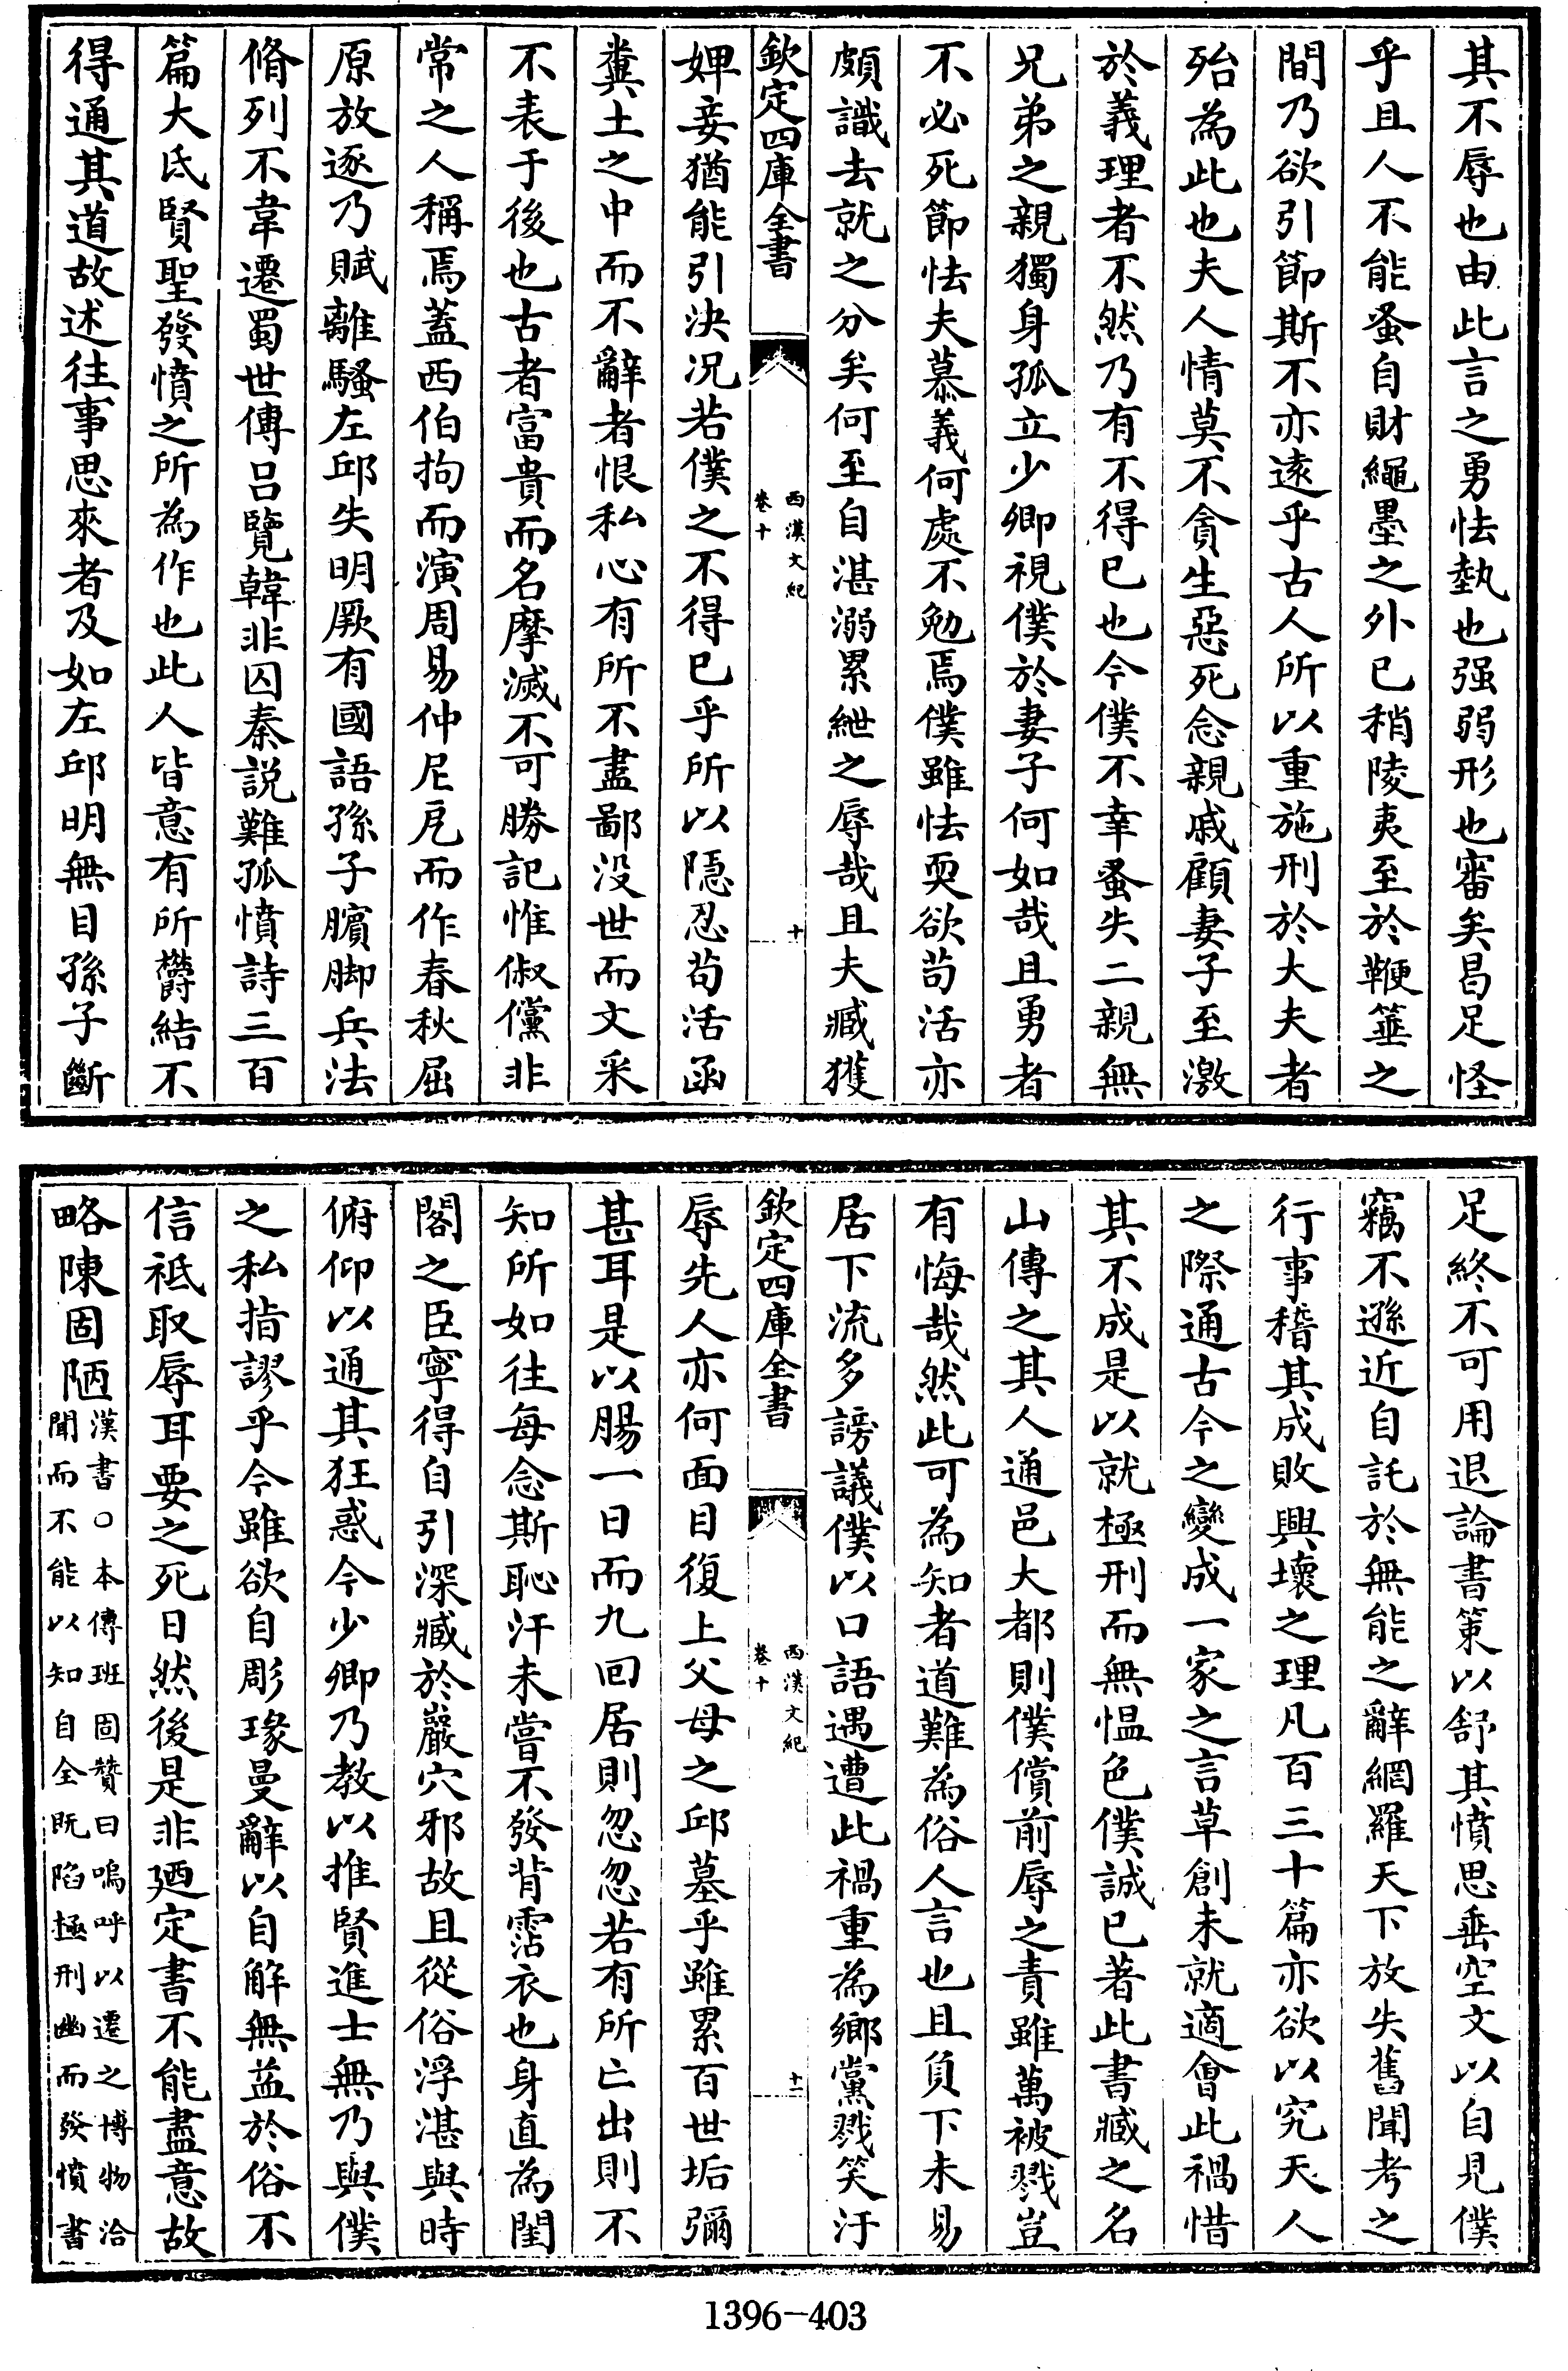 其不辱也由此言之勇怯埶也强弱形也審矣曷足怪
乎且人不能蚤自財繩墨之外已稍陵夷至於鞭箠之
間乃欲引節斯不亦遠乎古人所以重施刑於大夫者
殆為此也夫人情莫不貪生惡死念親戚顧妻子至激
於義理者不然乃有不得已也今僕不幸蚤失二親無
兄弟之親獨身孤立少卿視僕於妻子何如哉且勇者
不必死節怯夫慕義何處不勉焉僕雖怯耎欲茍活亦
頗識去就之分矣何至自湛溺累紲之辱哉且夫臧獲
欽定四庫全書
西漢文紀
卷十
十
婢妾猶能引決况若僕之不得已乎所以隱忍茍活函
糞土之中而不辭者恨私心有所不盡鄙没世而文采
不表于後也古者富貴而名摩滅不可勝記惟俶儻非
常之人稱焉蓋西伯拘而演周易仲尼戹而作春秋屈
原放逐乃賦離騷左邱失明厥有國語孫子臏脚兵法
脩列不韋遷蜀世傳吕覽韓非囚秦説難孤憤詩三百
篇大氐賢聖發憤之所為作也此人皆意有所鬱結不
得通其道故述往事思來者及如左邱明無目孫子斷
足終不可用退論書策以舒其憤思垂空文以自見僕
竊不遜近自託於無能之辭網羅天下放失舊聞考之
行事稽其成敗興壞之理凡百三十篇亦欲以究天人
之際通古今之變成一家之言草創未就適會此禍惜
其不成是以就極刑而無愠色僕誠已著此書臧之名
山傳之其人通邑大都則僕償前辱之責雖萬被戮豈
有悔哉然此可為知者道難為俗人言也且負下未易
居下流多謗議僕以口語遇遭此禍重為鄉黨戮笑汙
欽定四庫全書
西漢文紀
卷十
十一
辱先人亦何面目復上父母之邱墓乎雖累百世垢彌
甚耳是以腸一日而九回居則忽忽若有所亡出則不
知所如往每念斯恥汗未嘗不發背霑衣也身直為閨
閤之臣寧得自引深臧於巖穴邪故且從俗浮湛與時
俯仰以通其狂惑今少卿乃教以推賢進士無乃與僕
之私指謬乎今雖欲自彫瑑曼辭以自解無益於俗不
信祗取辱耳要之死日然後是非廼定書不能盡意故
略陳固陋
漢書○本傳班固贊曰嗚呼以遷之博物洽
聞而不能以知自全既陷極刑幽而發憤書
1396-403